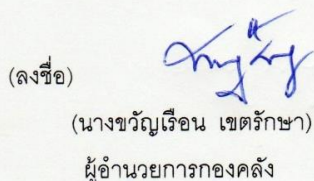 (ลงชื่อ)
(นางขวัญเรือน เขตรักษา)
ผู้อำนวยการกองคลัง